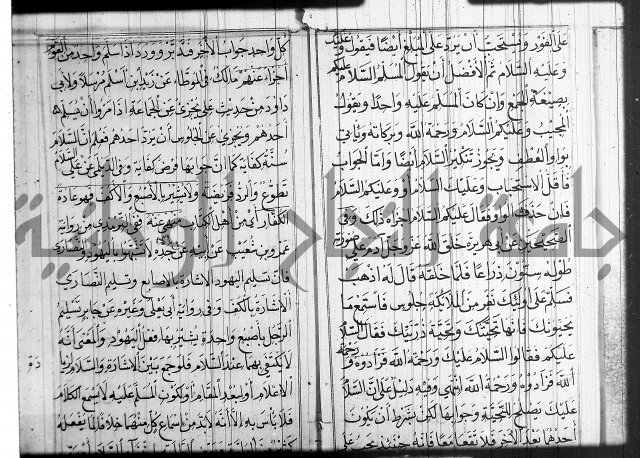 على الفور ويستحب أن يرد على المبلغ أيضا فيقول وعليك
وعليه السلام ثم الأفضل أن يقول المسلم السلام عليكم
بصيغة الجمع وإن كان المسلم عليه واحدا ويقول
المجيب وعليكم السلام ورحمة الله وبركاته ويأتي
بواو العطف ويجوز تنكير السلام أيضا وأما الجواب
فأقل الاستحباب وعليك السلام أو وعليكم السلام
فإن حذف الواو فقال عليكم السلام أجزأه ذلك وفي
الصحيحين عن أبي هريرة خلق الله عز وجل آدم على صورته
طوله ستون ذراعا فلما خلقه قال له اذهب
فسلم على أولئك نفر من الملائكة جلوس فاستمع ما
يحيونك فإنها تحيتك وتحية ذريتك فقال السلام
عليكم فقالوا السلام عليك ورحمة الله فزادوه ورحمة
الله فزادوه ورحمة الله انتهى وفيه دليل على أن السلام
عليك يصلح للتحية وجوابها لكن بشرط أن يكون
أحدهما بعد الآخر فلا يقعا معا فإنه حينئذ يجب على
كل واحد جواب الآخر فقد ورد إذا سلم واحد من القوم
أجزأ عنهم مالك في الموطأ عن زيد بن أسلم مرسلا ولأبي
داود من حديث علي يجزي عن الجماعة إذا مروا أن يسلم
أحدهم ويجزي عن الجلوس أن يرد أحدهم فعلم أن السلام
سنة كفاية كما أن جوابها فرض كفاية وفي الديلمي عن علي السلام
تطوع والرد فريضة ولا يشير بالأصبع والأكف فهو عادة
الكفار أي من أهل الكتاب منهي عنه ففي الترمذي من رواية
عمرو بن شعيب عن أبيه عن جده لا تشبهوا باليهود والنصارى
فإن تسليم اليهود الإشارة بالأصابع وتسليم النصارى
الإشارة بالأكف وفي رواية أبي يعلى وغيره عن جابر تسليم
الرجل بأصبع واحدة يشير بها فعل اليهود والمعنى أنه
لا يكتفي بهما عند السلام فلو جمع بين الإشارة والسلام
الإعلام أو لبعد المقام أو لكون المسلم عليه لا يسمع الكلام
فلا بأس به إلا أنه لا بد من إسماع كل منهما خلافا لما يفعله
جامعة النجاح الوطنية